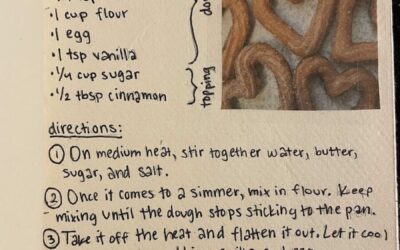 ·1 cup flour
·1 egg
·1 tsp vanilla
·1/4 cup sugar
·1/2 tbsp cinnamon
topping
directions:
① On medium heat, stir together water, butter,
sugar, and salt.
② Once it comes to a simmer, mix in flour. Keep
mixing until the dough stops sticking to the pan.
③ Take it off the heat and flatten it out. Let it cool